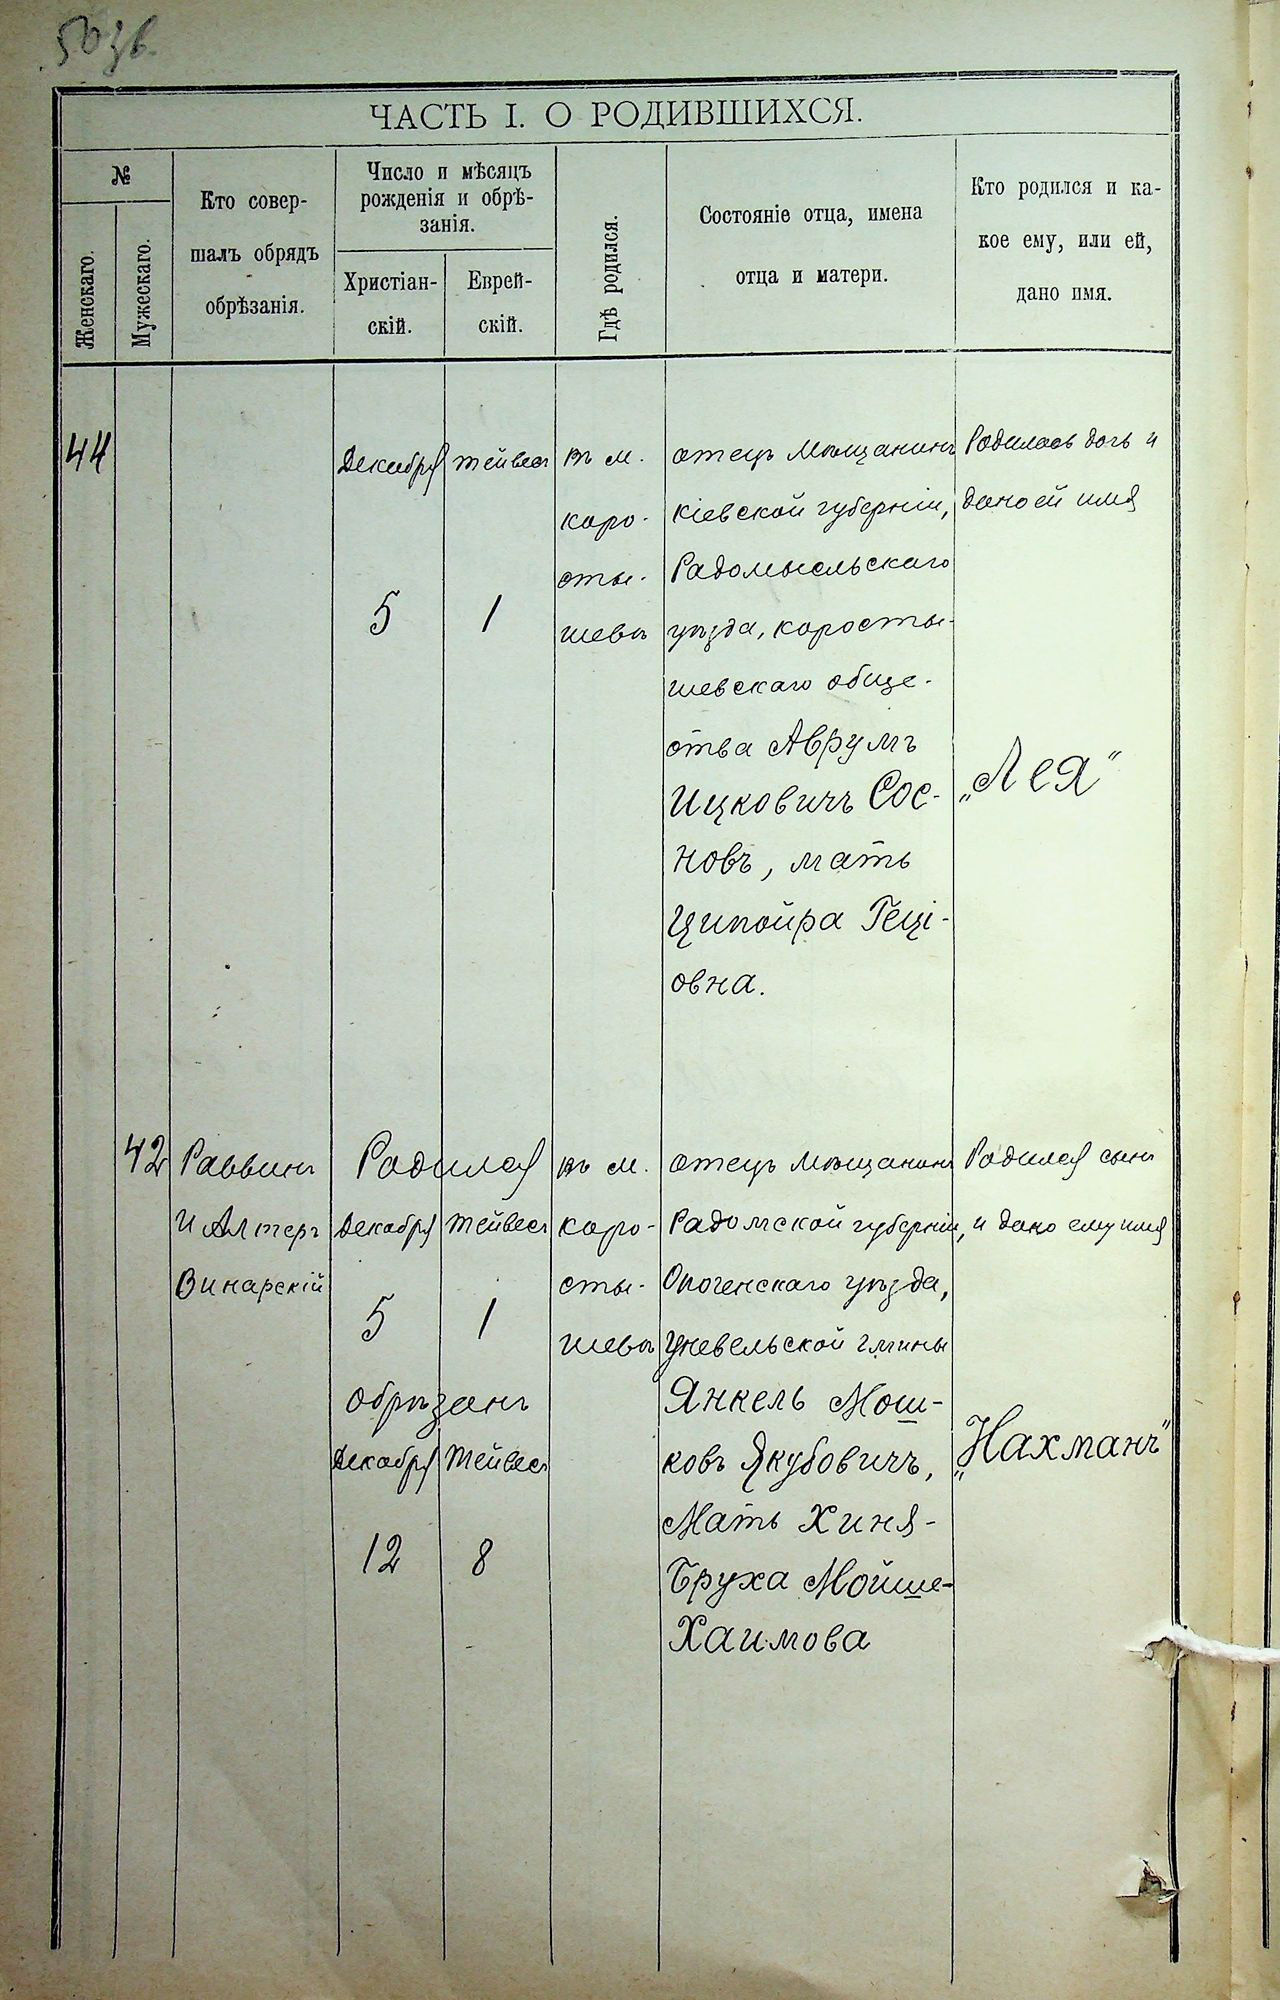 503б.
ЧАСТЬ I. О РОДИВШИХСЯ.
№
Женскаго.
Мужескаго.
Кто совер-
шалъ обрядъ
обрѣзанія.
Число и мѣсяцъ
рожденія и обрѣ-
занія.
Христіан-
скій.
Еврей-
скій.
Гдѣ родился.
Состояніе отца, имена
отца и матери.
Кто родился и ка-
кое ему, или ей,
дано имя.
44
Декабря
5
Тейвесъ
1
въ м.
коро-
сты-
шевъ
отецъ Мѣщанинъ
Кіевской губерніи,
Радомысльскаго
уѣзда, коросты-
шевскаго обще-
ства Аврумъ
Ицковичъ Сос-
новъ, мать
Ципойра Геці-
овна.
Родилась дочь и
дано ей имя
„Лея"
42
Раввинъ
И Алтеръ
Винарскій
Родился
Декабря
5
Тейвесъ
1
обрѣзанъ
Декабря
12
Тейвесъ
8
въ м.
коро-
сты-
шевъ
отецъ Мѣщанинъ
Радомской губерніи,
Опоченскаго уѣзда,
гмины
Янкель Мош-
ковъ Якубовичъ,
Мать Хиня-
Бруха Мойше-
Хаимова
Родился сынъ
и дано ему имя
„Нахманъ"